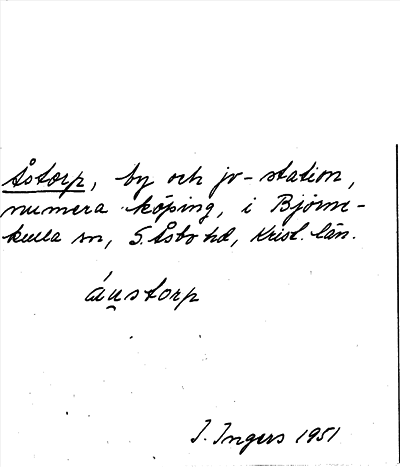 Åstorp, by och jv-station,
numera köping, i Björne-
kulla sn, S. Åsbo hd, Krist. län.
áu̯storp
I. Ingers 1951